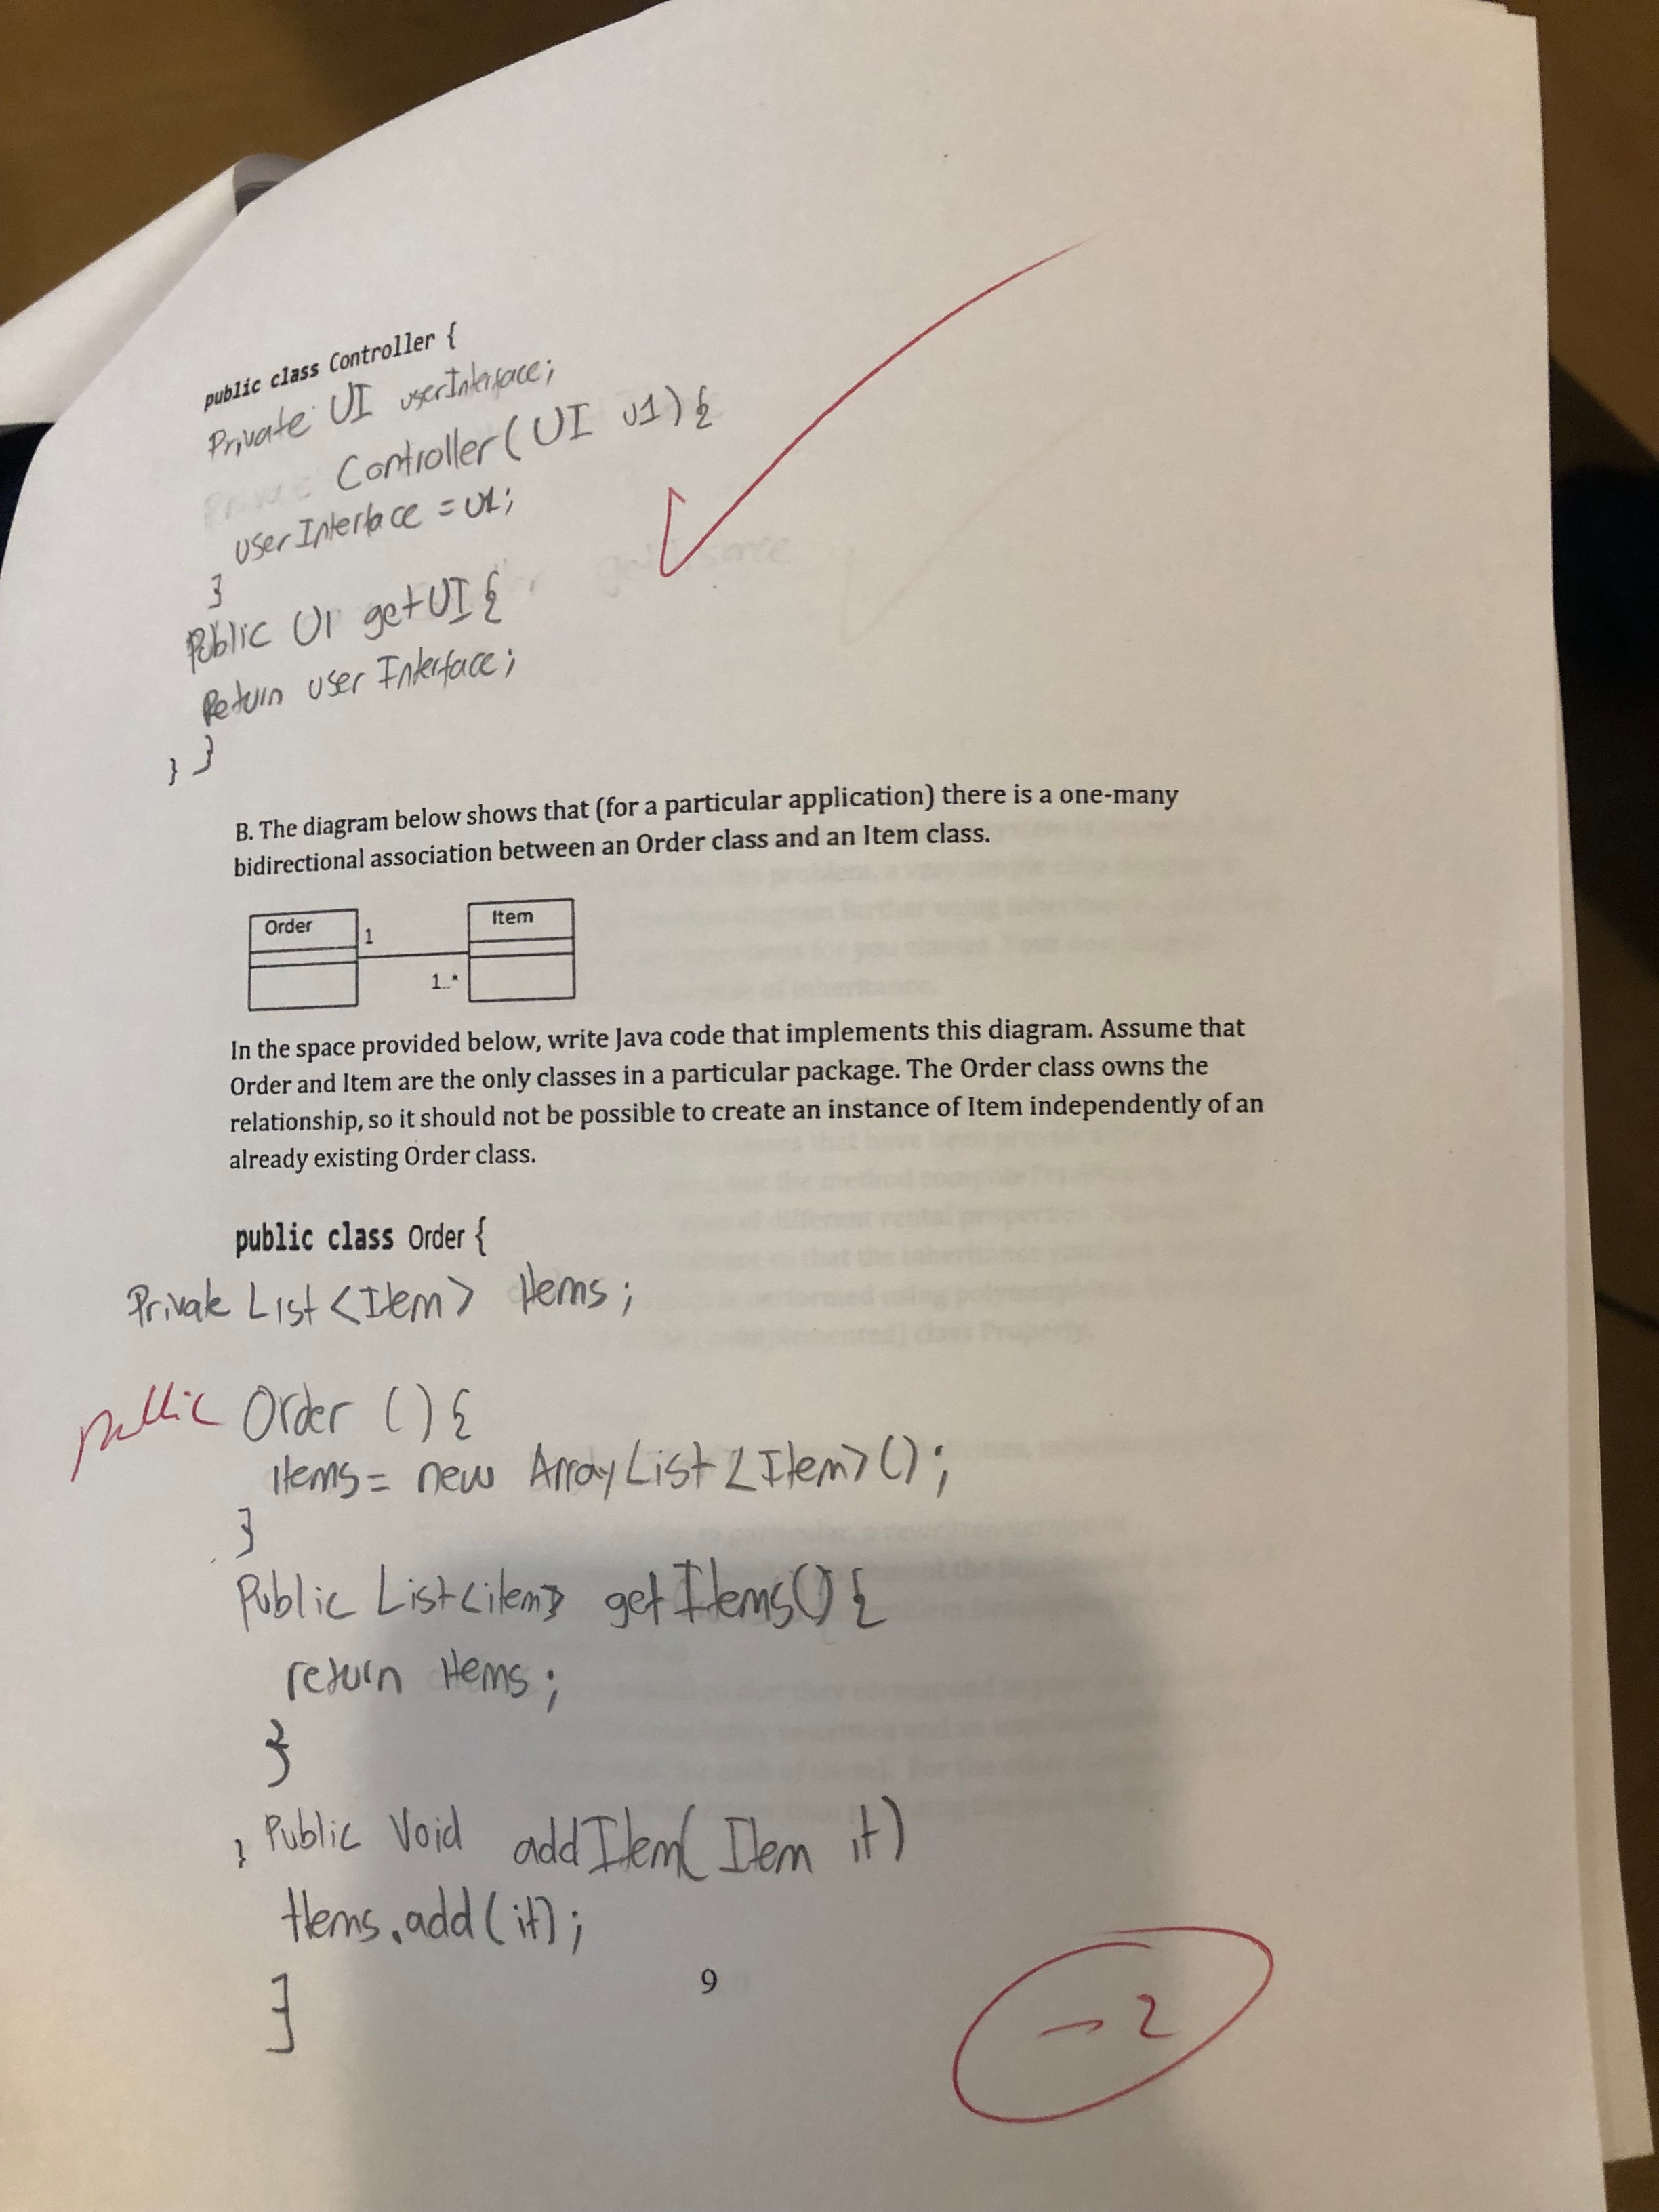 public class Controller {
Private UI userInterface;
Controller(UI u1){
userInterface = u1;
}
Public UI getUI{
Return userInterface;
}
}
B. The diagram below shows that (for a particular application) there is a one-many
bidirectional association between an Order class and an Item class.
Order
1
1..*
Item
In the space provided below, write Java code that implements this diagram. Assume that
Order and Item are the only classes in a particular package. The Order class owns the
relationship, so it should not be possible to create an instance of Item independently of an
already existing Order class.
public class Order {
Private List<Item> Items;
public Order () {
items = new ArrayList<Item>();
}
Public List<item> getItems(){
return Items;
}
} Public Void addItem(Item it)
Items.add(it);
}
9
-2